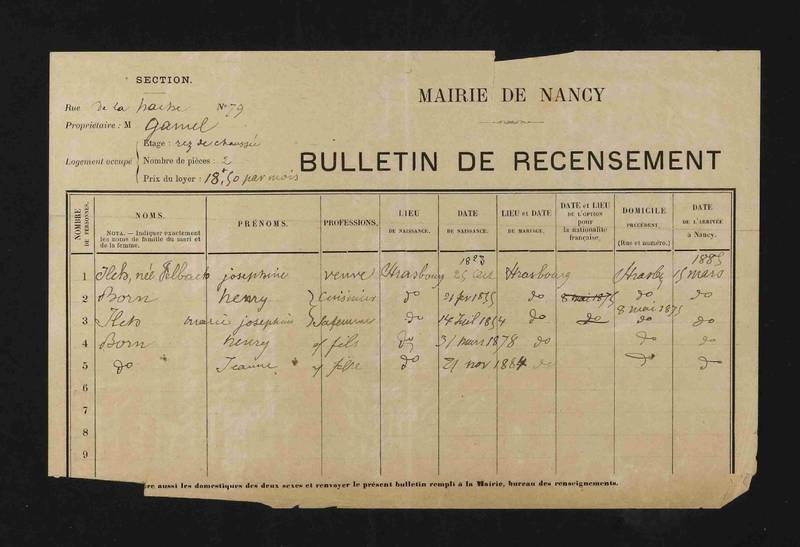 SECTION.
Rue de la hache N° 79
MAIRIE DE NANCY
Propriétaire : M Gamel
Logement occupé
Étage : rez de chaussée
Nombre de pièces : 2
Prix du loyer : 18f50 par mois
BULLETIN DE RECENSEMENT
NOMBRE DE PERSONNES.
NOMS.
NOTA. — Indiquer exactement les noms de famille du mari et de la femme.
PRÉNOMS.
PROFESSIONS.
LIEU DE NAISSANCE.
DATE DE NAISSANCE.
LIEU et DATE DE MARIAGE.
DATE et LIEU DE L'OPTION pour la nationalité française.
DOMICILE PRÉCÉDENT. (Rue et numéro.)
DATE DE L'ARRIVÉE à Nancy.
1 née josephine veuve Strasbourg 1823 Strasbourg 15 mars 1885
2 Born henry Cuisinier do do 8 mai 1875 do do
3 marie josephine sa femme do 14 1854 do do 8 mai 1875 do do
4 Born henry fils do 31 mars 1878 do do do
5 do Jeanne do 21 nov 1884 do do do
6
7
8
9
re aussi les domestiques des deux sexes et renvoyer le présent bulletin rempli à la Mairie, bureau des renseignements.